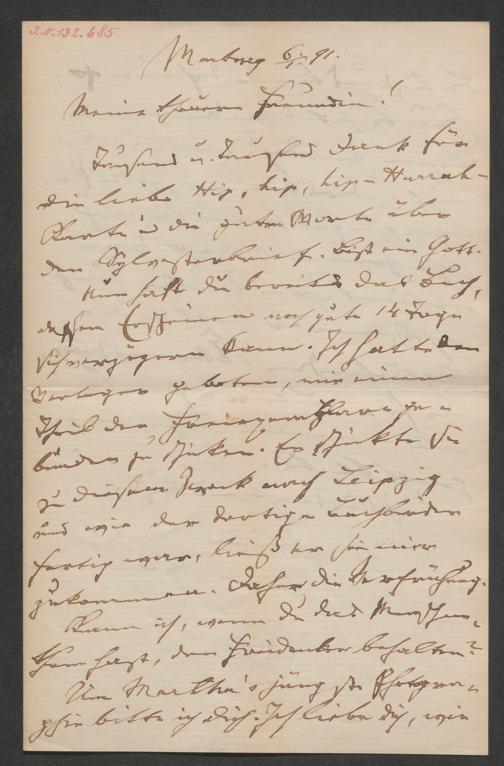 J.N. 132.685
Marburg 6/1 91.
Meine theuere Freundin!
Tausend u. Tausend Dank für
die liebe Hip, hip, hip-Hurrah-
Karte u die guten Worte über
den Sylvesterbrief. Bist ein Gott.
Nun hast du bereits das Buch,
dessen Erscheinen noch gute 14 Tage
sich verzögern kann. Ich hatte den
Verleger gebeten, mir einen
Theil der Freiexemplare ge-
bunden zu schicken. Er schickte sie
zu diesem Zweck nach Leipzig
und wie der dortige Buchbinder
fertig war, ließ er sie mir
zukommen. Daher die Verfrühung.
Kann ich, wenn du das
hast, den Freidenker behalten?
Um Martha's jüngste Photogra-
phie bitte ich dich. Ich liebe dich, wie